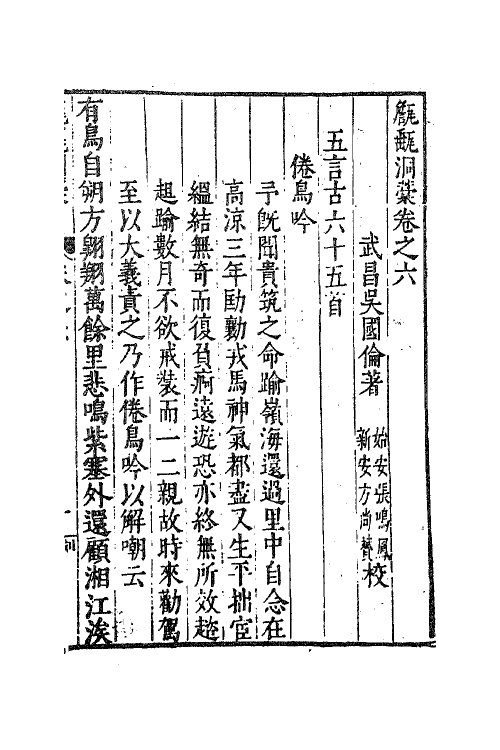 甔甀洞藁卷之六
武昌吳國倫著 始安張鳴鳳 新安方尚贇 校
五言古六十五首
倦鳥吟
予旣聞貴筑之命踰嶺海還過里中自念在
高涼三年劻勷戎馬神氣都盡又生平拙宦
縕結無奇而復負痾遠遊恐亦終無所效趑
趄踰數月不欲戒裝而一二親故時來勸駕
至以大義責之乃作倦鳥吟以解嘲云
有鳥自朔方翱翔萬餘里悲鳴紫塞外還顧湘江涘